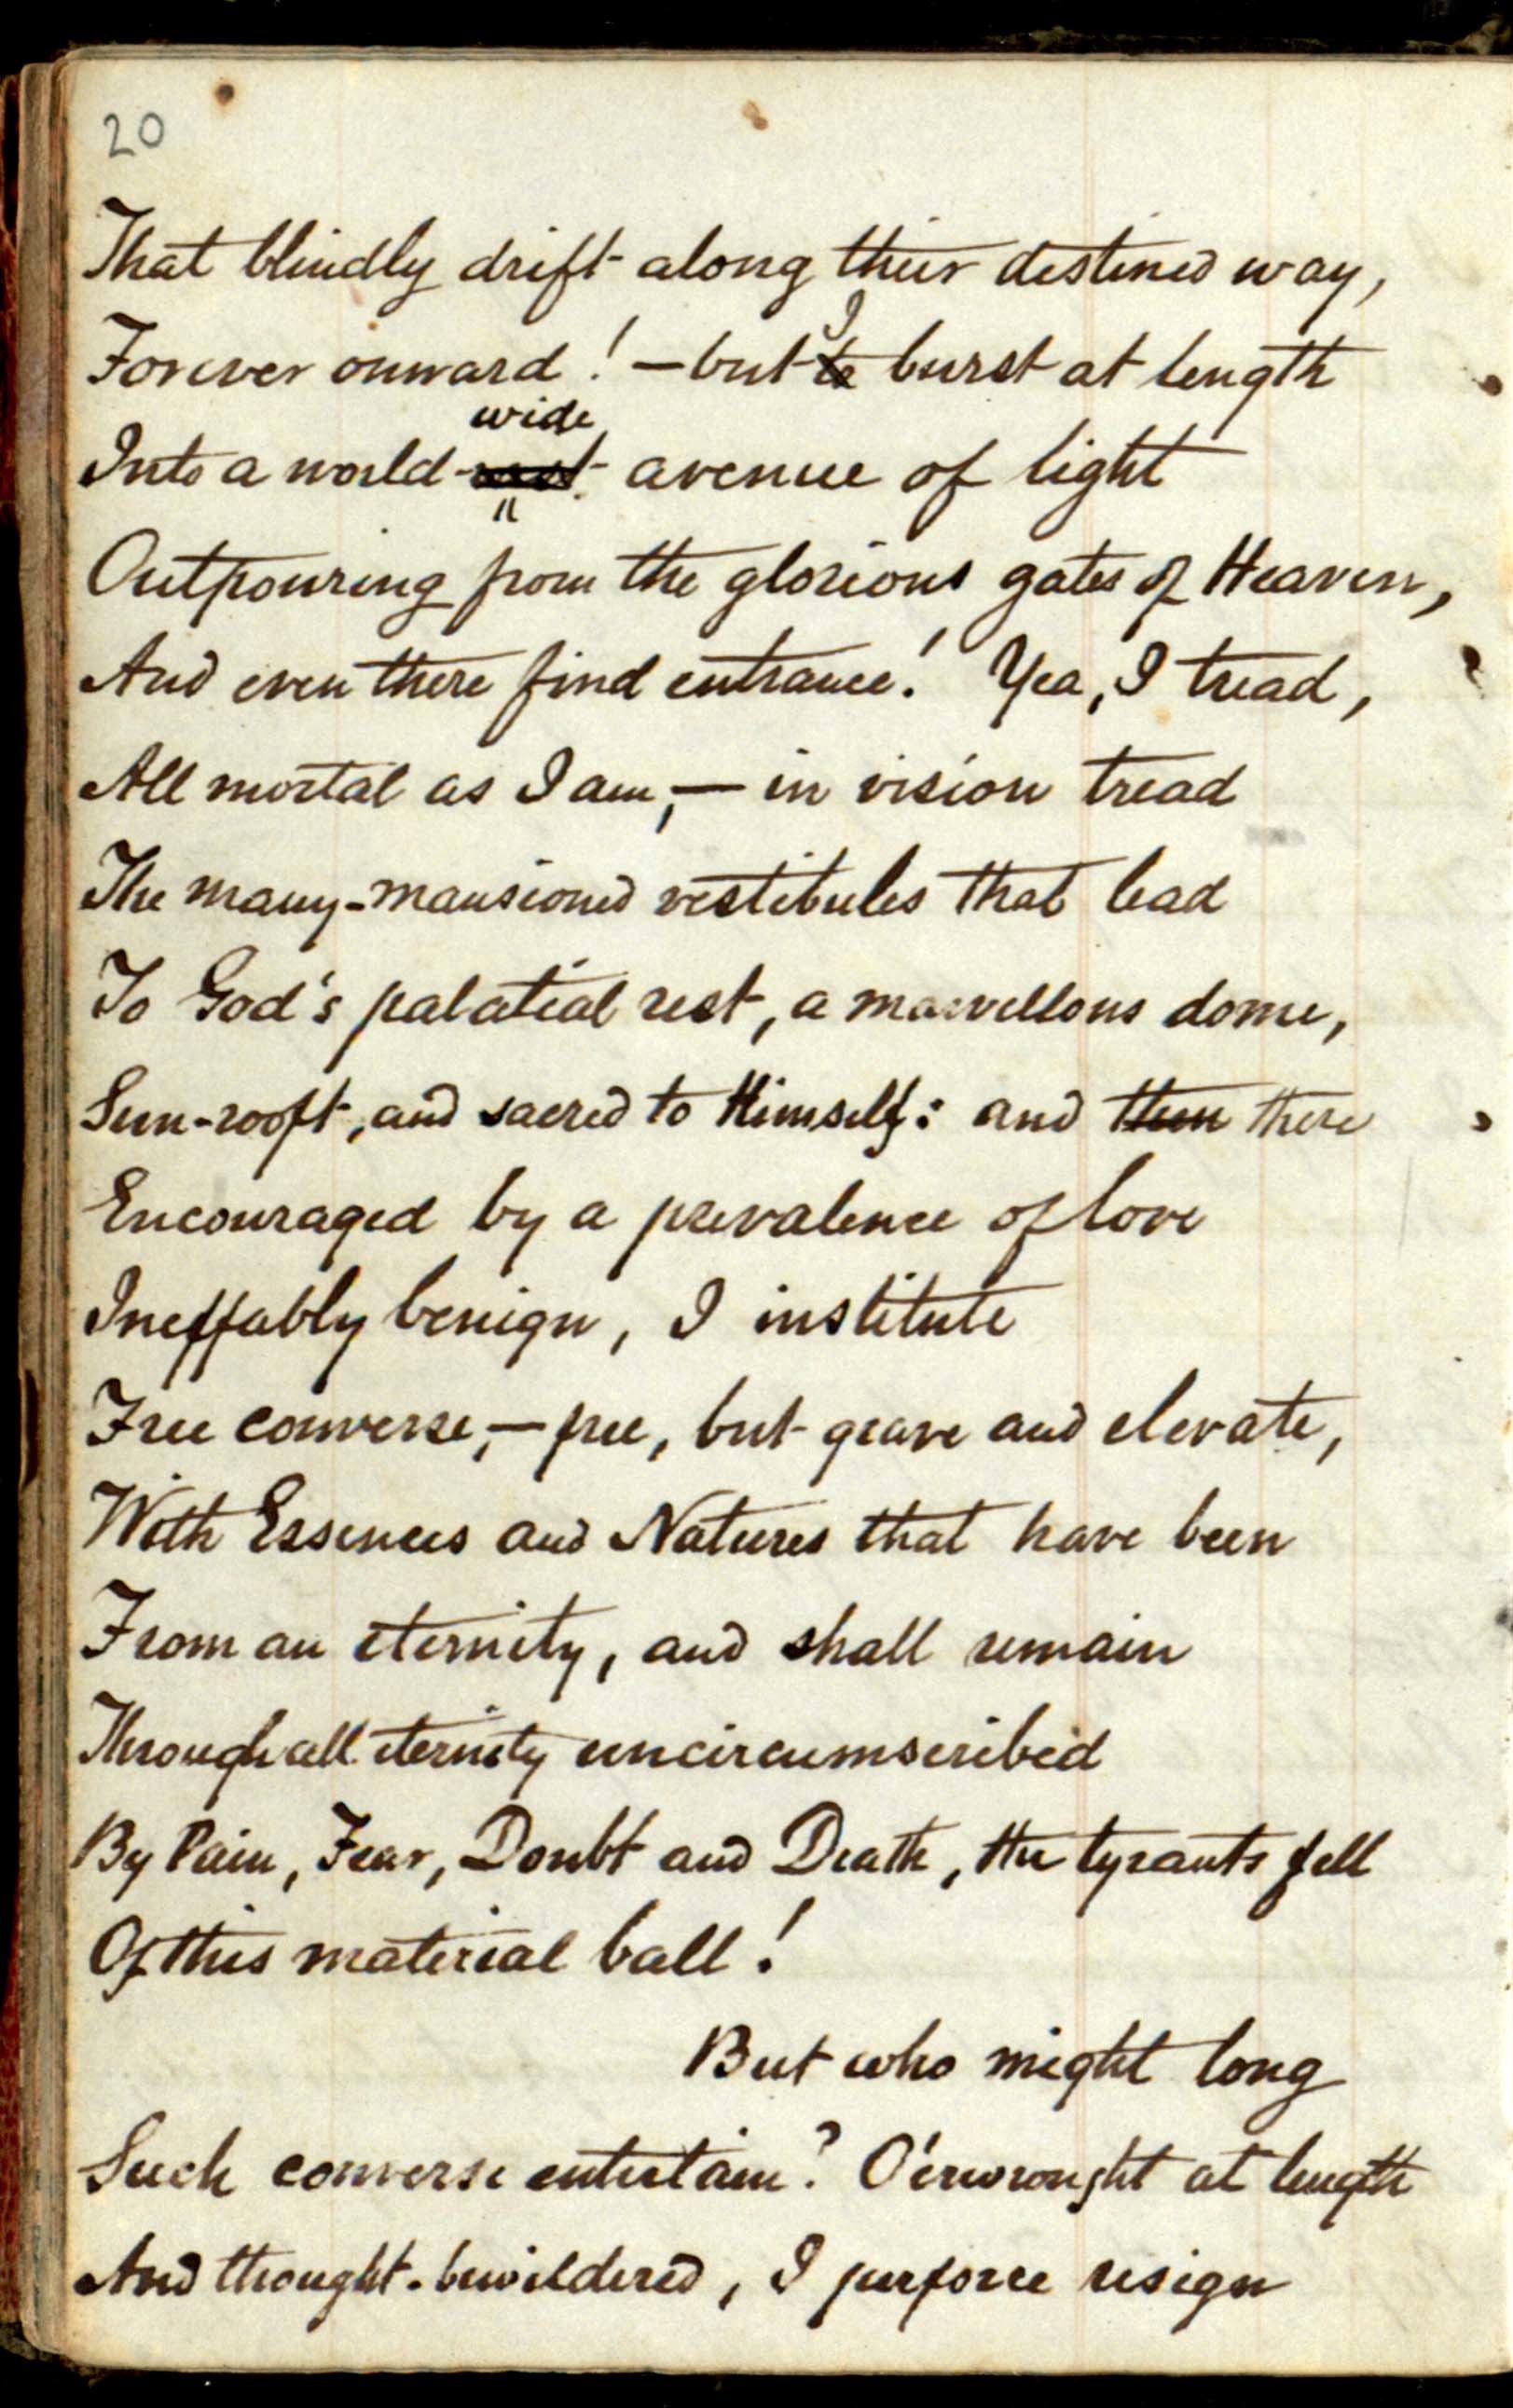 20
That blindly drift along their destined way,
Forever onward! — but I burst at length
Into a world-wide avenue of light
Outpouring from the glorious gates of Heaven,
And even there find entrance! Yea, I tread,
All mortal as I am, — in vision tread
The many-mansioned vestibules that lead
To God's palatial rest, a marvellous dome,
Sun-rooft, and sacred to Himself: and then there
Encouraged by a prevalence of love
Ineffably benign, I institute
Free converse, — free, but grave and elevate,
With Essences and Natures that have been
From an eternity, and shall remain
Through all eternity uncircumscribed
By Pain, Fear, Doubt and Death, the tyrants fell
Of this material ball!
But who might long
Such converse entertain? O'erwrought at length
And thought-bewildered, I perforce resign